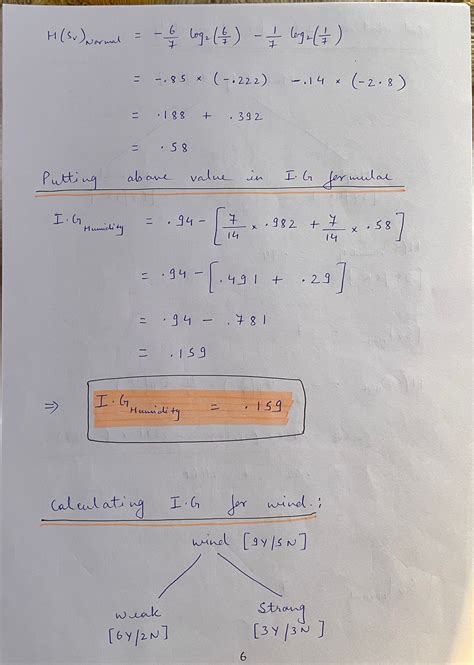 H(Sv)Normal = -6/7 log2(6/7) -1/7 log2(1/7)
= -.85 × (-.222) -.14 × (-2.8)
= .188 + .392
= .58
Putting above value in I.G formulae
I.G Humidity = .94 - [7/14 × .982 + 7/14 × .58]
= .94 - [.491 + .29]
= .94 - .781
= .159
⇒ I.G Humidity = .159
Calculating I.G for wind.:
wind [9Y/5N]
Weak Strong
[6Y/2N] [3Y/3N]
6